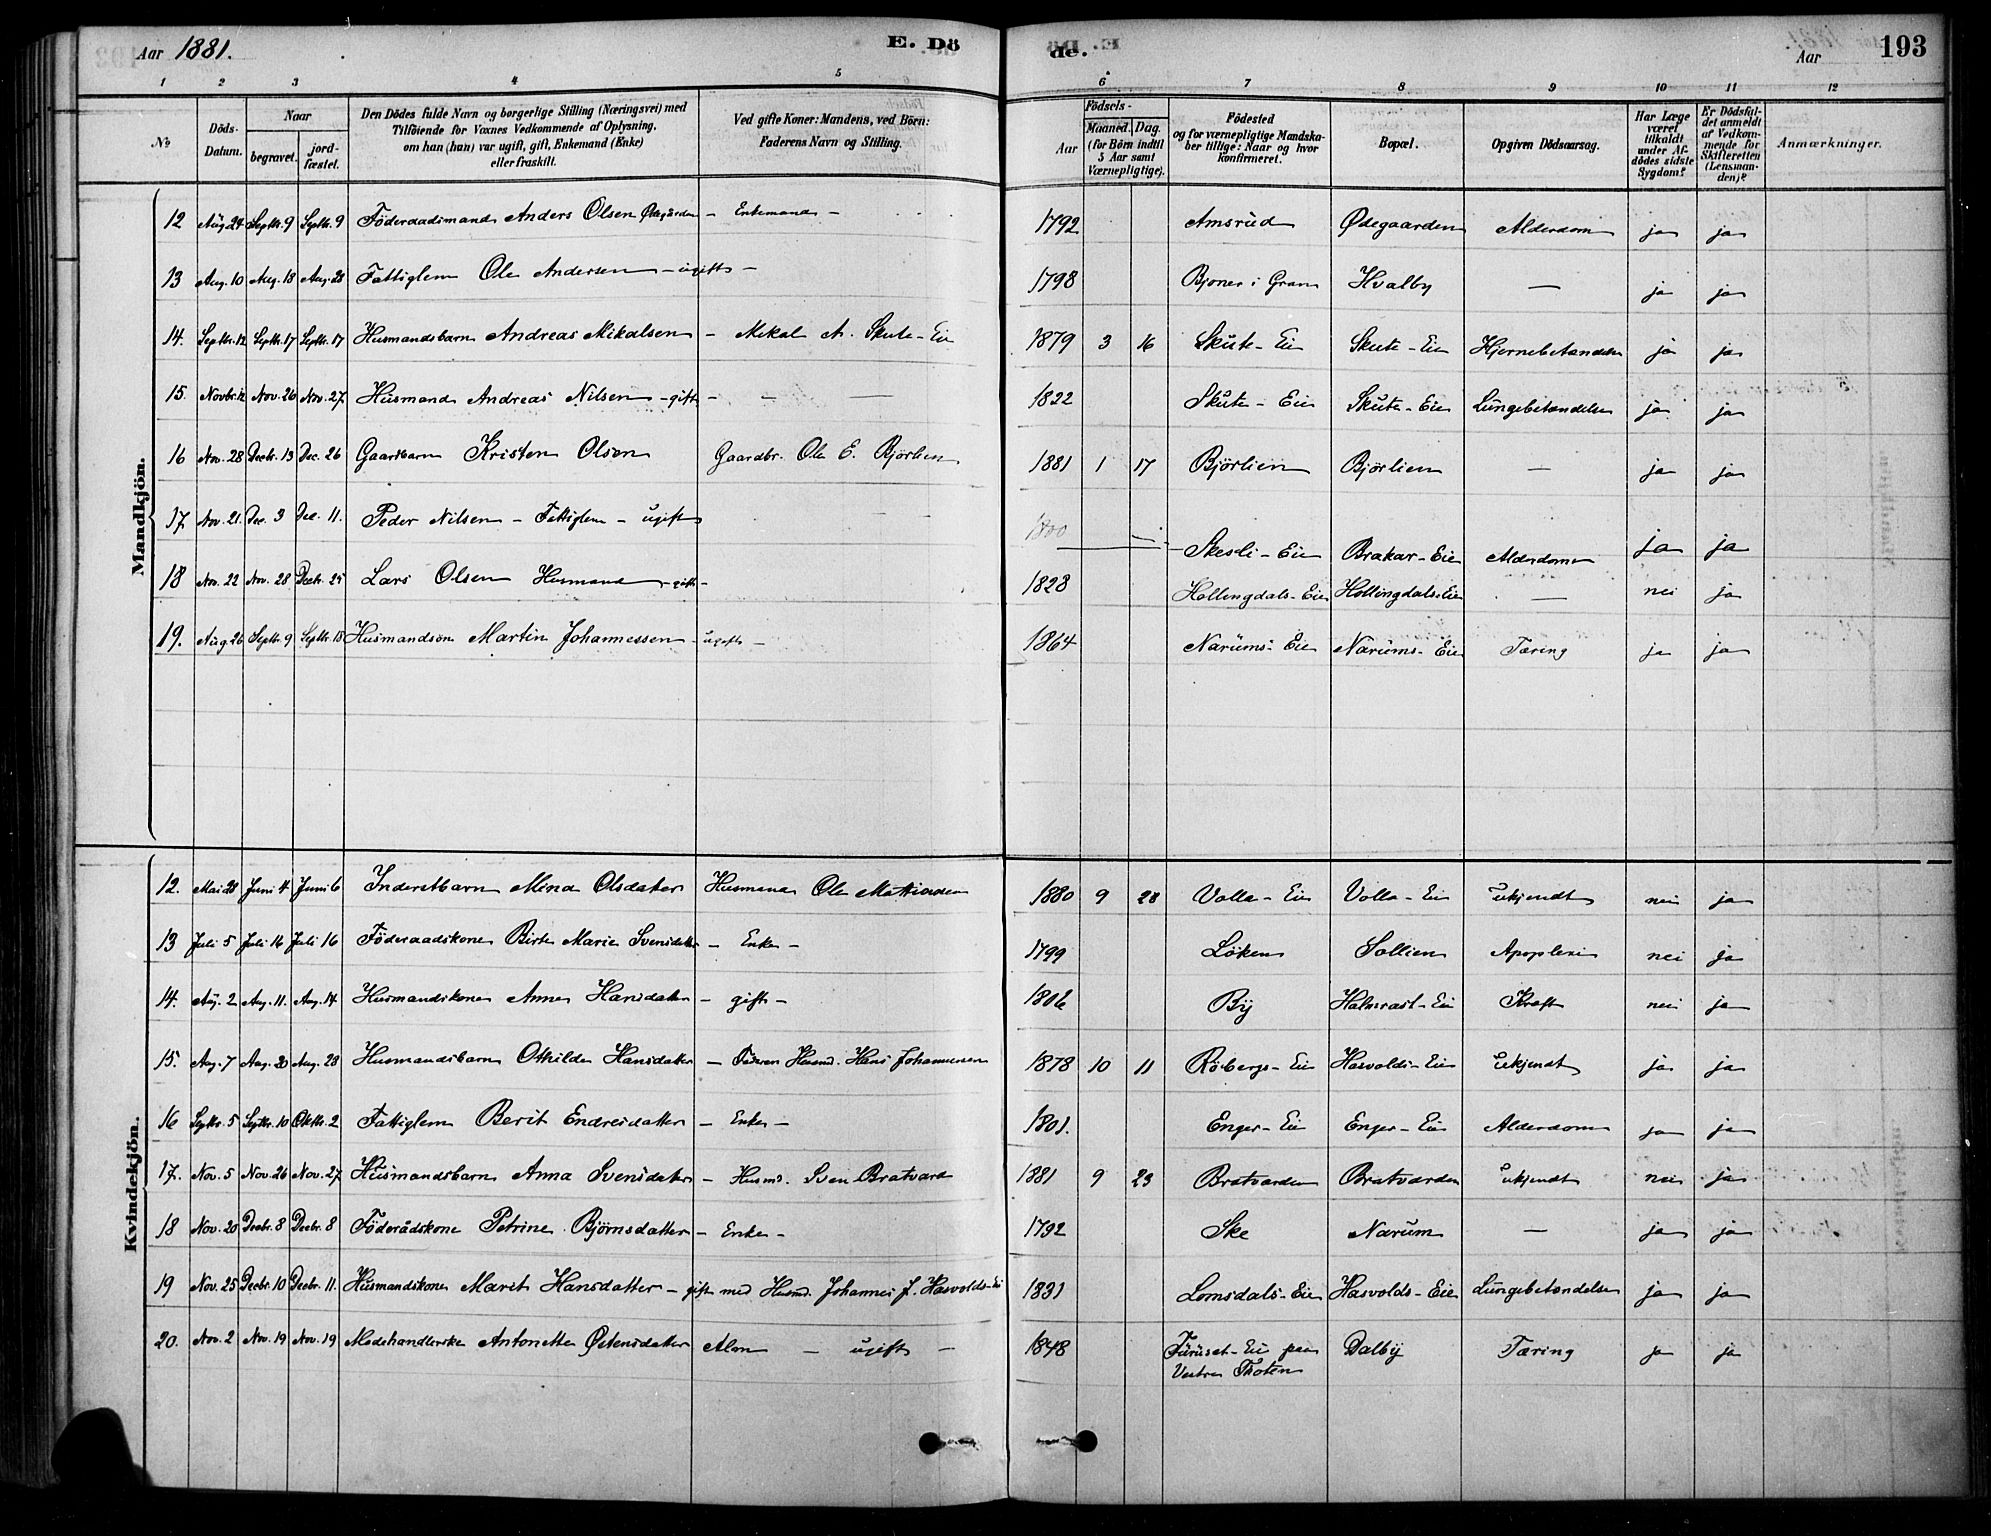 Aar 1881. E. Dö de. Aar 193
1 2 3 4 5 6 7 8 9 10 11 12
No Döds-Datum. Naar begravet. jord-fæstet. Den Dödes fulde Navn og borgerlige Stilling (Næringsvei) med Tilföiende for Voxnes Vedkommende af Oplysning. om han (hun) var ugift, gift, Enkemand (Enke) eller fraskilt. Ved gifte Koner: Mandens, ved Börn: Faderens Navn og Stilling. Födsels- Aar Maaned. Dag. (for Börn indtil 5 Aar samt Værnepligtige). Födested og for værnepligtige Mandska-ber tillige: Naar og hvor konfirmeret. Bopæl. Opgiven Dödsaarsag. Har Læge været tilkaldt under Af-dödes sidste Sygdom? Er Dödsfal-det anmeldt af Vedkom-mende for Skifteretten (Lensman-den)? Anmærkninger.
Mandkjön.
12 Aug. 24 Septbr. 9 Septbr. 9 Föderaadsmand Anders Olsen Ødegården - Enkemand - 1792 Amsrud Ødegaarden Alderdom ja ja
13 Aug. 10 Aug. 18 Aug. 28 Fattiglem Ole Andersen - ugift - 1798 Bjoner i Gran Hvalby — ja ja
14. Septbr. 12 Septbr. 17 Septbr. 17 Husmandsbarn Andreas Mikalsen - Mikal A. Skute-Eie 1879 3 16 Skute-Eie Skute-Eie Hjernebetændelse ja ja
15. Novbr. 12 Nov. 26 Nov. 27 Husmand Andreas Nilsen - gift - — — 1822 Skute-Eie Skute-Eie Lungebetændelse ja ja
16 Nov. 28 Decbr. 13 Dec. 26 Gaardbarn Kristen Olsen Gaardbr. Ole E. Björlien 1881 1 17 Björlien Björlien — ja ja
17. Nov. 21. Dec. 3 Dec. 11. Peder Nilsen - Fattiglem - ugift 1800 Skesli-Eie Brakar-Eie Alderdom ja ja
18 Nov. 22 Nov. 28 Decbr. 25 Lars Olsen Husmand - gift - 1828 Hollingdals-Eie Hollingdals-Eie — nei ja
19. Aug. 26 Septbr. 9 Septbr. 18 Husmandsön Martin Johannessen - ugift - 1864 Narums-Eie Narums-Eie Tæring ja ja
Kvindekjön.
12. Mai 28 Juni 4 Juni 6 Inderstbarn Mina Olsdatter Husmand Ole Mattiasen 1880 9 28 Volla-Eie Volla-Eie Ukjendt nei ja
13 Juli 5 Juli 16 Juli 16 Föderaadskone Birte Marie Svensdatter - Enke - 1799 Löken Sollien Apoplexi nei ja
14. Aug. 2 Aug. 11. Aug. 14 Husmandskone Anne Hansdatter - gift - 1806 By Halmrast-Eie Kræft nei ja
15. Aug. 7 Aug. 20 Aug. 28 Husmandsbarn Othilde Hansdatter - Faderen Husmd. Hans Johannesen 1878 10 11 Röbergs-Eie Hasvolds-Eie Ukjendt ja ja
16 Septbr. 5 Septbr. 10 Oktbr. 2 Fattiglem Berit Endresdatter - Enke - 1801. Enger-Eie Enger-Eie Alderdom ja ja
17. Nov. 5 Nov. 26 Nov. 27 Husmandsbarn Anna Svensdatter - Husmd. Sven Bratvard 1881 9 23 Bratvarden Bratvarden Ukjendt nei ja
18 Nov. 20 Decbr. 8 Decbr. 8 Föderådskone Petrine Björnsdatter - Enke - 1792 Ske Narum — ja ja
19 Nov. 25 Decbr. 10 Decbr. 11. Husmandskone Marit Hansdatter - gift med Husmd. Johannes J. Hasvolds-Ei 1831 Lomsdals-Eie Hasvolds-Eie Lungebetændelse ja ja
20. Nov. 2 Nov. 19 Nov. 19 Modehandlerske Antonette Østensdatter Alm - ugift - 1848 Furuset-Eie paa Vestre Thoten Dalby Tæring ja ja